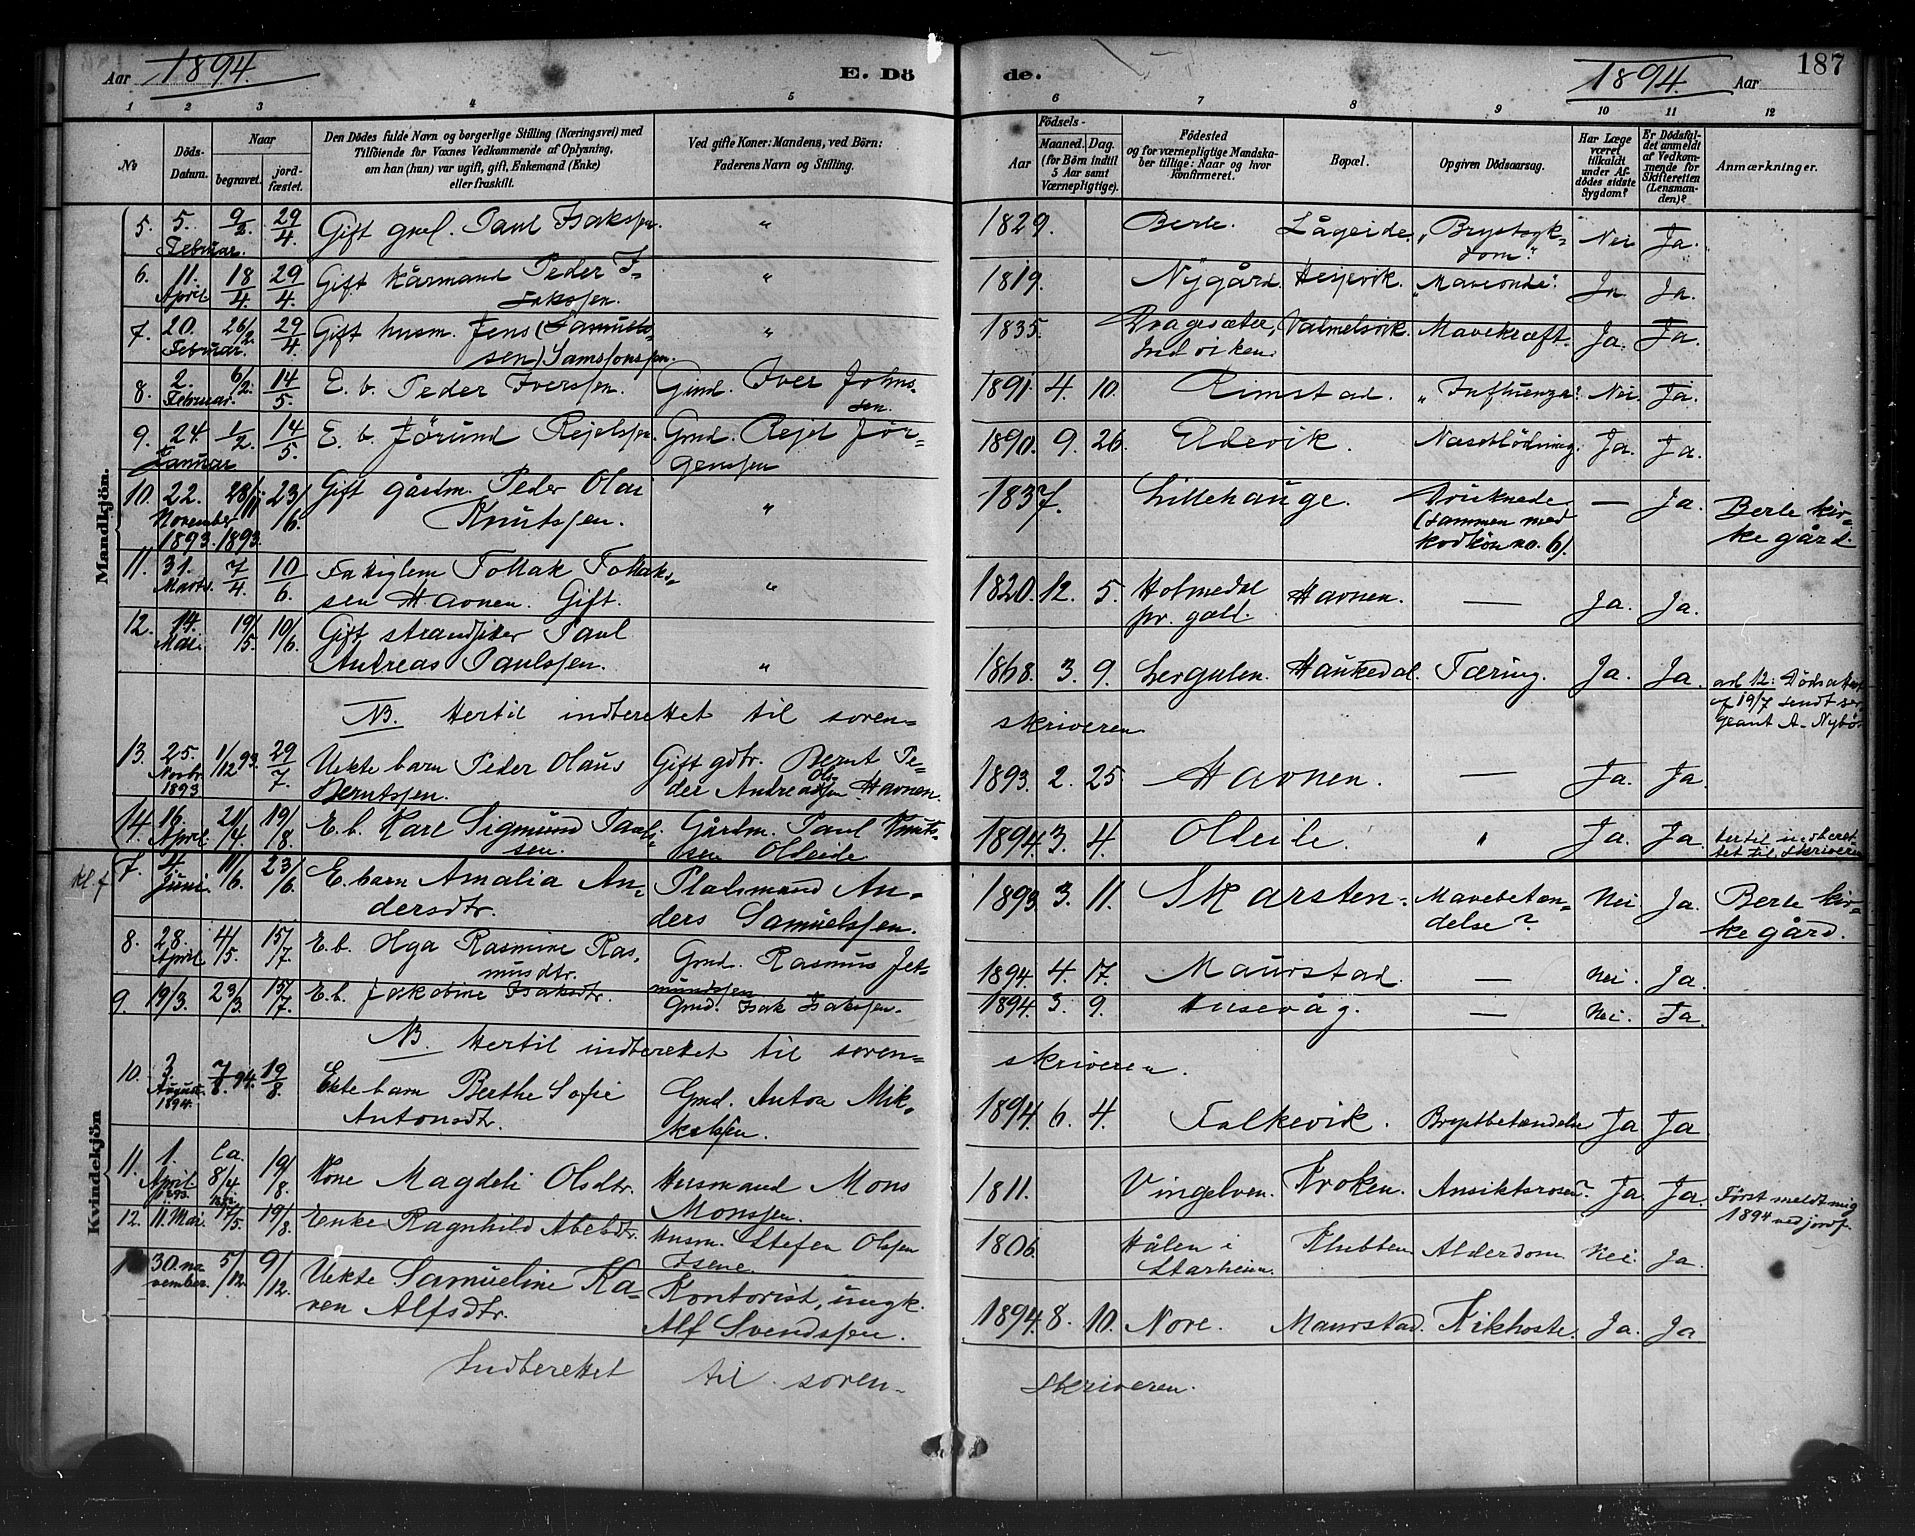 Aar 1894. E. Dö
de. 1894 Aar 187
1 2 3 4 5 6 7 8 9 10 11 12
No
Döds-Datum.
Naar
begravet.
jord-fæstet.
Den Dödes fulde Navn og borgerlige Stilling (Næringsvei) med
Tilföiende for Voxnes Vedkommende af Oplysning,
om han (hun) var ugift, gift, Enkemand (Enke)
eller fraskilt.
Ved gifte Koner: Mandens, ved Börn:
Faderens Navn og Stilling.
Födsels-
Aar
Maaned. (for Börn indtil 5 Aar samt Værnepligtige).
Dag.
Födested
og for værnepligtige Mandska-
ber tillige: Naar og hvor
Konfirmeret.
Bopæl.
Opgiven Dödsaarsag.
Har Læge været tilkaldt under Af-dödes sidste Sygdom?
Er Dödsfal-det anmeldt af Vedkom-mende for Skifteretten (Lensman-den)?
Anmærkninger.
Mandkjön.
5. 5. Februar. 9/2. 29/4. Gift gml. Paul Isakssen. " 1829. Berle. Lågeide. "Brystsyk-dom". Nei Ja.
6. 11. April. 18/4. 29/4. Gift kårmand Peder I-sakssen. " 1819. Nygård. Hessevik. "Maveonde". Ja. Ja.
7. 20. Februar. 26/2. 29/4. Gift husm. Jens (Samuels-sen) Samsonssen. " 1835. Dragesæter, Indviken. Valmelsvik. Mavekræft. Ja. Ja.
8. 2. Februar. 6/2. 14/5. E. b. Peder Iverssen. Gmd. Iver Johns-sen. 1891. 4. 10. Rimstad. "Influenza". Nei. Ja.
9. 24. Januar 1/2. 14/5. E. b. Jörund Rejelssen. Gmd. Rejel Jör-genssen 1890. 9. 26. Eldevik. Næseblödning. Ja. Ja.
10. 22. November 1893. 28/11 1893. 23/6. Gift gårdm. Peder Olai Knutssen. " 1837. Lillehauge. Druknede (sammen med kvdkön no. 6). — Ja. Berle kir-kegård.
11. 31. Marts. 7/4. 10/6. Fattiglem Tollak Tollaks-sen Havnen. Gift. " 1820. 12. 5. Holmedal pr. gæld. Havnen. — Ja. Ja.
12. 14. Mai. 19/5. 10/6. Gift strandsider Paul Andreas Paulssen. " 1868. 3. 9. Lergulen. Haukedal. Tæring. Ja. Ja. ad 12: Dödsattest af 19/7 sendt ser-geant A. Nybö
NB. Hertil indberettet til soren-skriveren
13. 25. Novbr. 1893 1/12 93. 29/7. Uekte barn Peder Olaus Berntssen. Gift gdtr. Bernt Pe-der Andreas Olssen Havnen. 1893. 2. 25. Havnen. — Ja. Ja.
14. 16. April. 21/4. 19/8. E. b. Karl Sigmund Pauls-sen. Gårdm. Paul Knuts-sen Oldeide 1894. 3. 4. Oldeide. " Ja. Ja. hertil indberet-tet til skriveren
Kvindekjön
7. 4. Juni. 11/6. 23/6. E. barn Amalia An-dersdtr. Pladsmand An-ders Samuelssen. 1893. 3. 11. Skarsten. Mavebetæn-delse? Nei. Ja. Berle kir-kegård.
8. 28. April 4/5. 15/7. E. b. Olga Rasmine Ras-musdtr. Gmd. Rasmus Jet-mundssen 1894. 4. 17. Maurstad. — Nei. Ja.
9. 19/3. 23/3. 15/7. E. b. Jakobine Isaksdtr. Gmd. Isak Isakssen. 1894. 3. 9. Husevåg. — Nei. Ja.
NB. Hertil indberettet til soren-skriveren.
10. 3. August 1894. 7/8. 94. 19/8. Ekte barn Berthe Sofie Antonsdtr. Gmd. Anton Mik-kelssen. 1894. 6. 4. Falkevik. Brystbetændelse Ja Ja
11. 1. April 1893. Ca. 8/4 19/8. Kone Magdeli Olsdtr. Husmand Mons Monssen. 1811. Vingelven. Kroken. Ansiktsrosen? Ja. Ja. Först meldt mig 1894 ved jordf.
12. 11. Mai. 17/5. 19/8. Enke Ragnhild Abelsdtr. Husm. Steffen Olssen Isene. 1806. Hålen i Starheim. Klubben Alderdom Nei. Ja.
30. november. 5/12. 9/12. Uekte Samueline Ka-ren Alfsdtr. Kontorist, ungk. Alf Svendssen. 1894. 8. 10. Nore. Maurstad. Kikhoste. Ja. Ja
Indberettet til soren-skriveren.